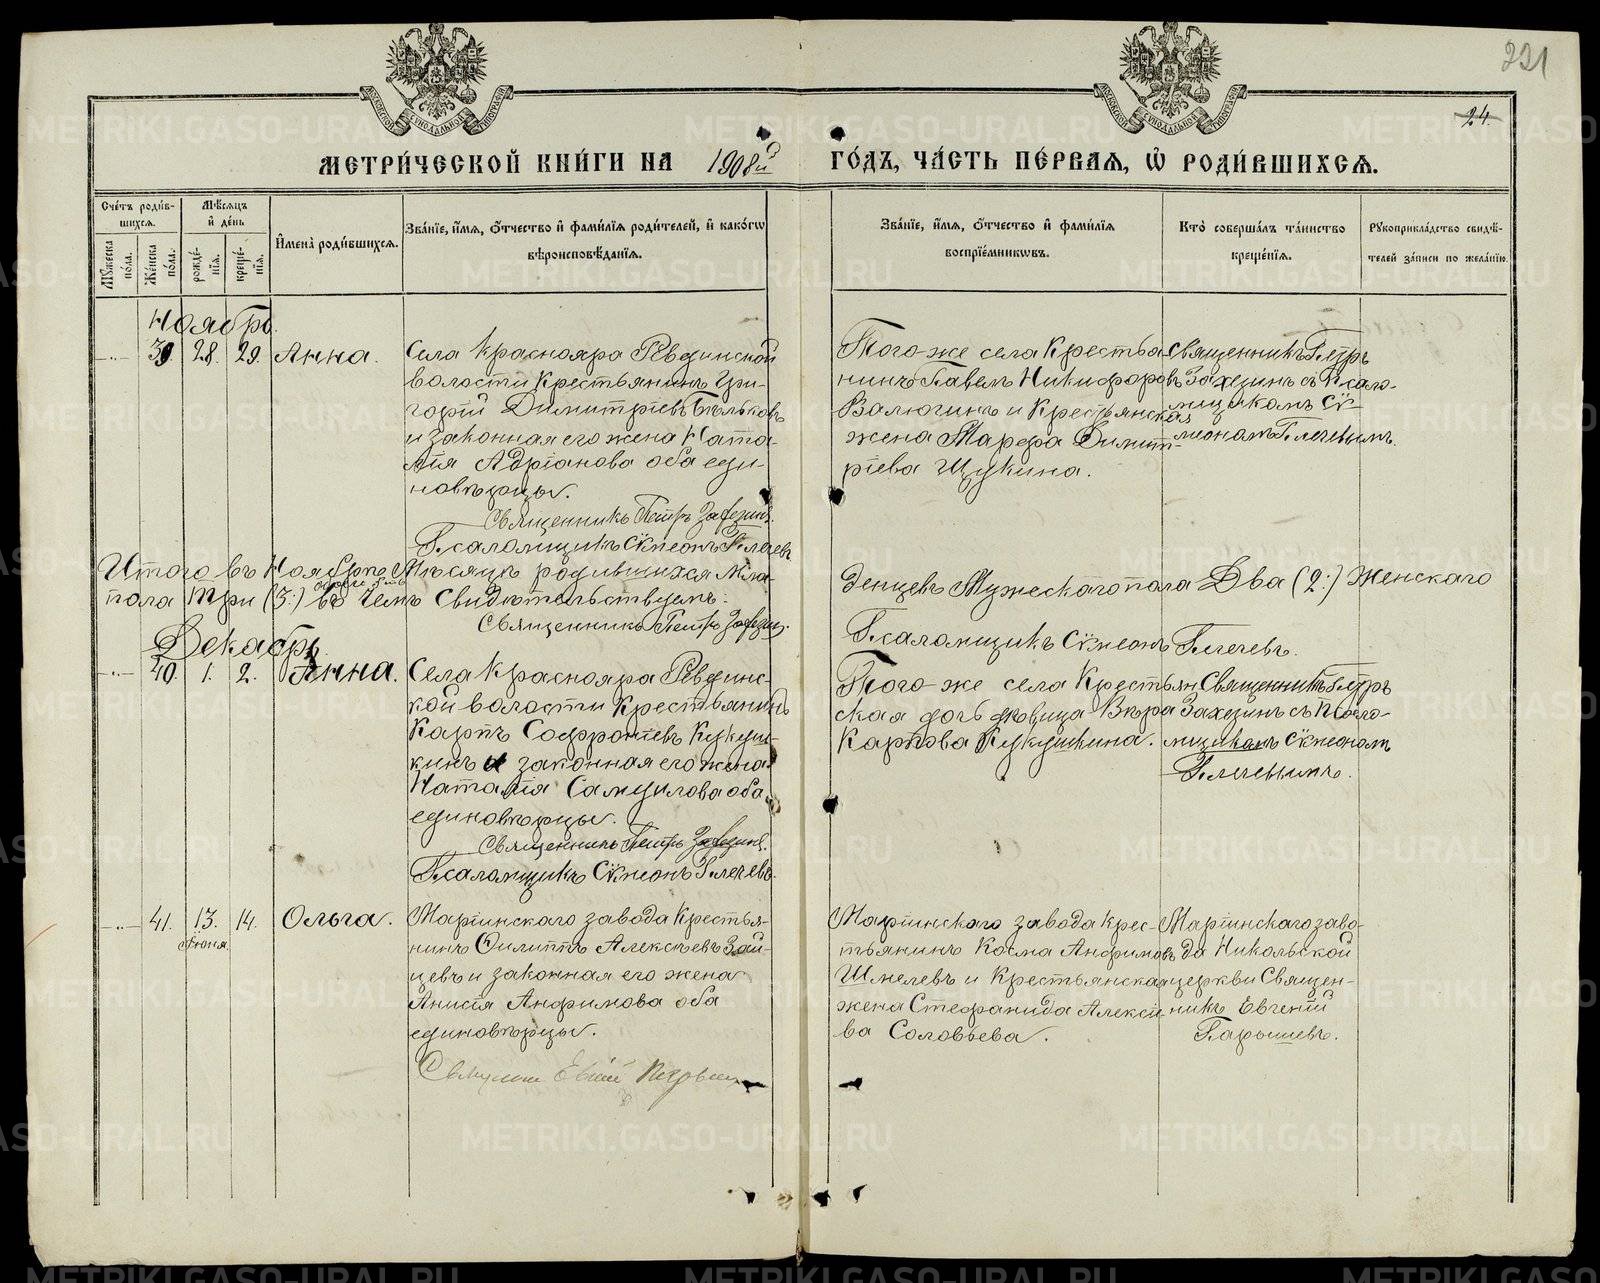 221
24.
МЕТРИ́ЧЕСКОЙ КНИ́ГИ НА 1908й ГО́ДЪ, ЧА́СТЬ ПЕ́РВАЯ, Ѿ РОДИ́ВШИХСЯ.
Сче́тъ роди́в-
шихся.
Мѣ́сяцъ
и҆ де́нь
Мꙋ́жеска
по́ла.
Же́нска
по́ла.
рожде́-
нїѧ.
креще́-
нїѧ.
И҆мена̀ роди́вшихсѧ.
Зва́нїе, и҆́мѧ, ѻ҆́тчество и҆ фами́лїѧ роди́телей, и҆ како́гѡ
вѣроисповѣ́данїѧ.
Зва́нїе, и҆́мѧ, ѻ҆́тчество и҆ фами́лїѧ
воспрїе́мникѡвъ.
Кто̀ соверша́лъ та́инство
креще́нїѧ.
Рꙋкоприкла́дство свидѣ́-
телей за́писи по жела́нїю.
Ноябрь.
39. 28. 29. Анна.
Села Краснояра Ревдинской
волости Крестьянинъ Гри-
горій Димитріевъ Бѣльковъ
и законная его жена Ната-
лія Адріанова оба еди-
новѣрцы.
Священникъ Петръ Захезинъ.
Псаломщикъ Сѵмеонъ Плечевъ
Того-же села Крестья-
нинъ Павелъ Никифоровъ
Валюгинъ и Крестьянская
жена Марфа Димит-
ріева Щукина.
Священникъ Петръ
Захезинъ съ Псало-
мщикомъ Сѵ-
меономъ Плечевымъ.
Итого въ Ноябрѣ Мѣсяцѣ родившихся Мла-
денцевъ Мужескаго пола Два (2:) Женскаго
пола три (3:) въ чемъ Свидѣтельствуемъ:
Священникъ Петръ Захезин.
Псаломщикъ Сѵмеонъ Плечевъ.
Декабрь
40. 1. 2. Анна.
Села Краснояра Ревдинс-
кой волости Крестьянинъ
Карпъ Софроніевъ Кукуш-
кинъ и законная его жена
Наталія Самуилова оба
единовѣрцы.
Священникъ Петръ Захезинъ.
Псаломщикъ Сѵмеонъ Плечевъ.
Того-же села Крестьян
ская дочь дѣвица Вѣра
Карпова Кукушкина.
Священникъ Петръ
Захезинъ съ Псало-
мщикомъ Сѵмеономъ
Плечевымъ.
41. 13. 14. Ольга.
Іюня.
Маріинскаго завода Крестья-
нинъ Филиппъ Алексѣевъ Зай-
цевъ и законная его жена
Анисія Анфимова оба
единовѣрцы.
Маріинскаго завода Крес-
тьянинъ Косма Анфимовъ
Шмелевъ и Крестьянская
жена Стефанида Алексѣе-
ва Соловьева.
Маріинскаго заво-
да Никольской
церкви Священ-
никъ Евгеній
Парышевъ.